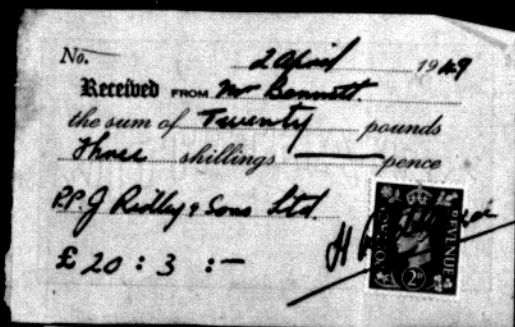 No. 2 April 1949
Received FROM Mr Bennett.
the sum of Twenty pounds
three shillings — pence
P.P. J Ridley & Sons Ltd.
£ 20 : 3 : —
H
REVENUE
2D